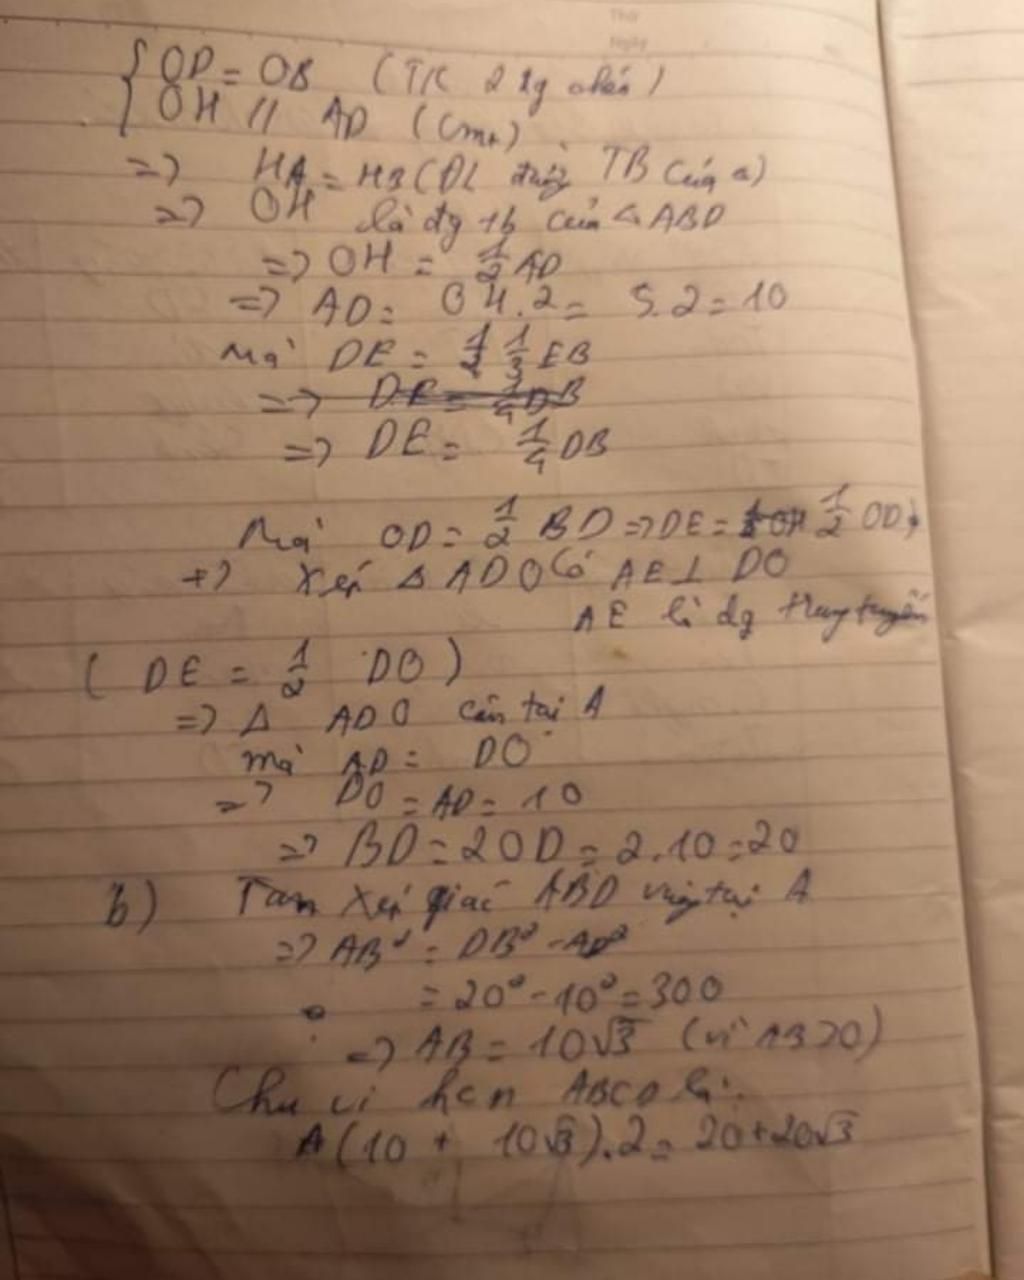 Thứ
Ngày
{ OD = OB (T/c 2 đg chéo)
OH // AD (cmt)
=> HA = HB (ĐL đường TB của Δ)
=> OH là đg tb của Δ ABD
=> OH = 1/2 AD
=> AD = OH.2 = 5.2 = 10
Mà DE = 1/3 EB
=> DE = 1/4 DB
=> DE = 1/4 DB
Mà OD = 1/2 BD => DE = 1/2 OD
+) Xét Δ ADO Có AE ⊥ DO
AE là đg trung tuyến
( DE = 1/2 DO )
=> Δ ADO cân tại A
mà AD = DO
=> DO = AD = 10
=> BD = 2OD = 2.10 = 20
b) Tam xét giác ABD vuông tại A
=> AB² = DB² - AD²
= 20² - 10² = 300
=> AB = 10√3 (vì AB > 0)
Chu vi hcn ABCD là:
(10 + 10√3).2 = 20 + 20√3